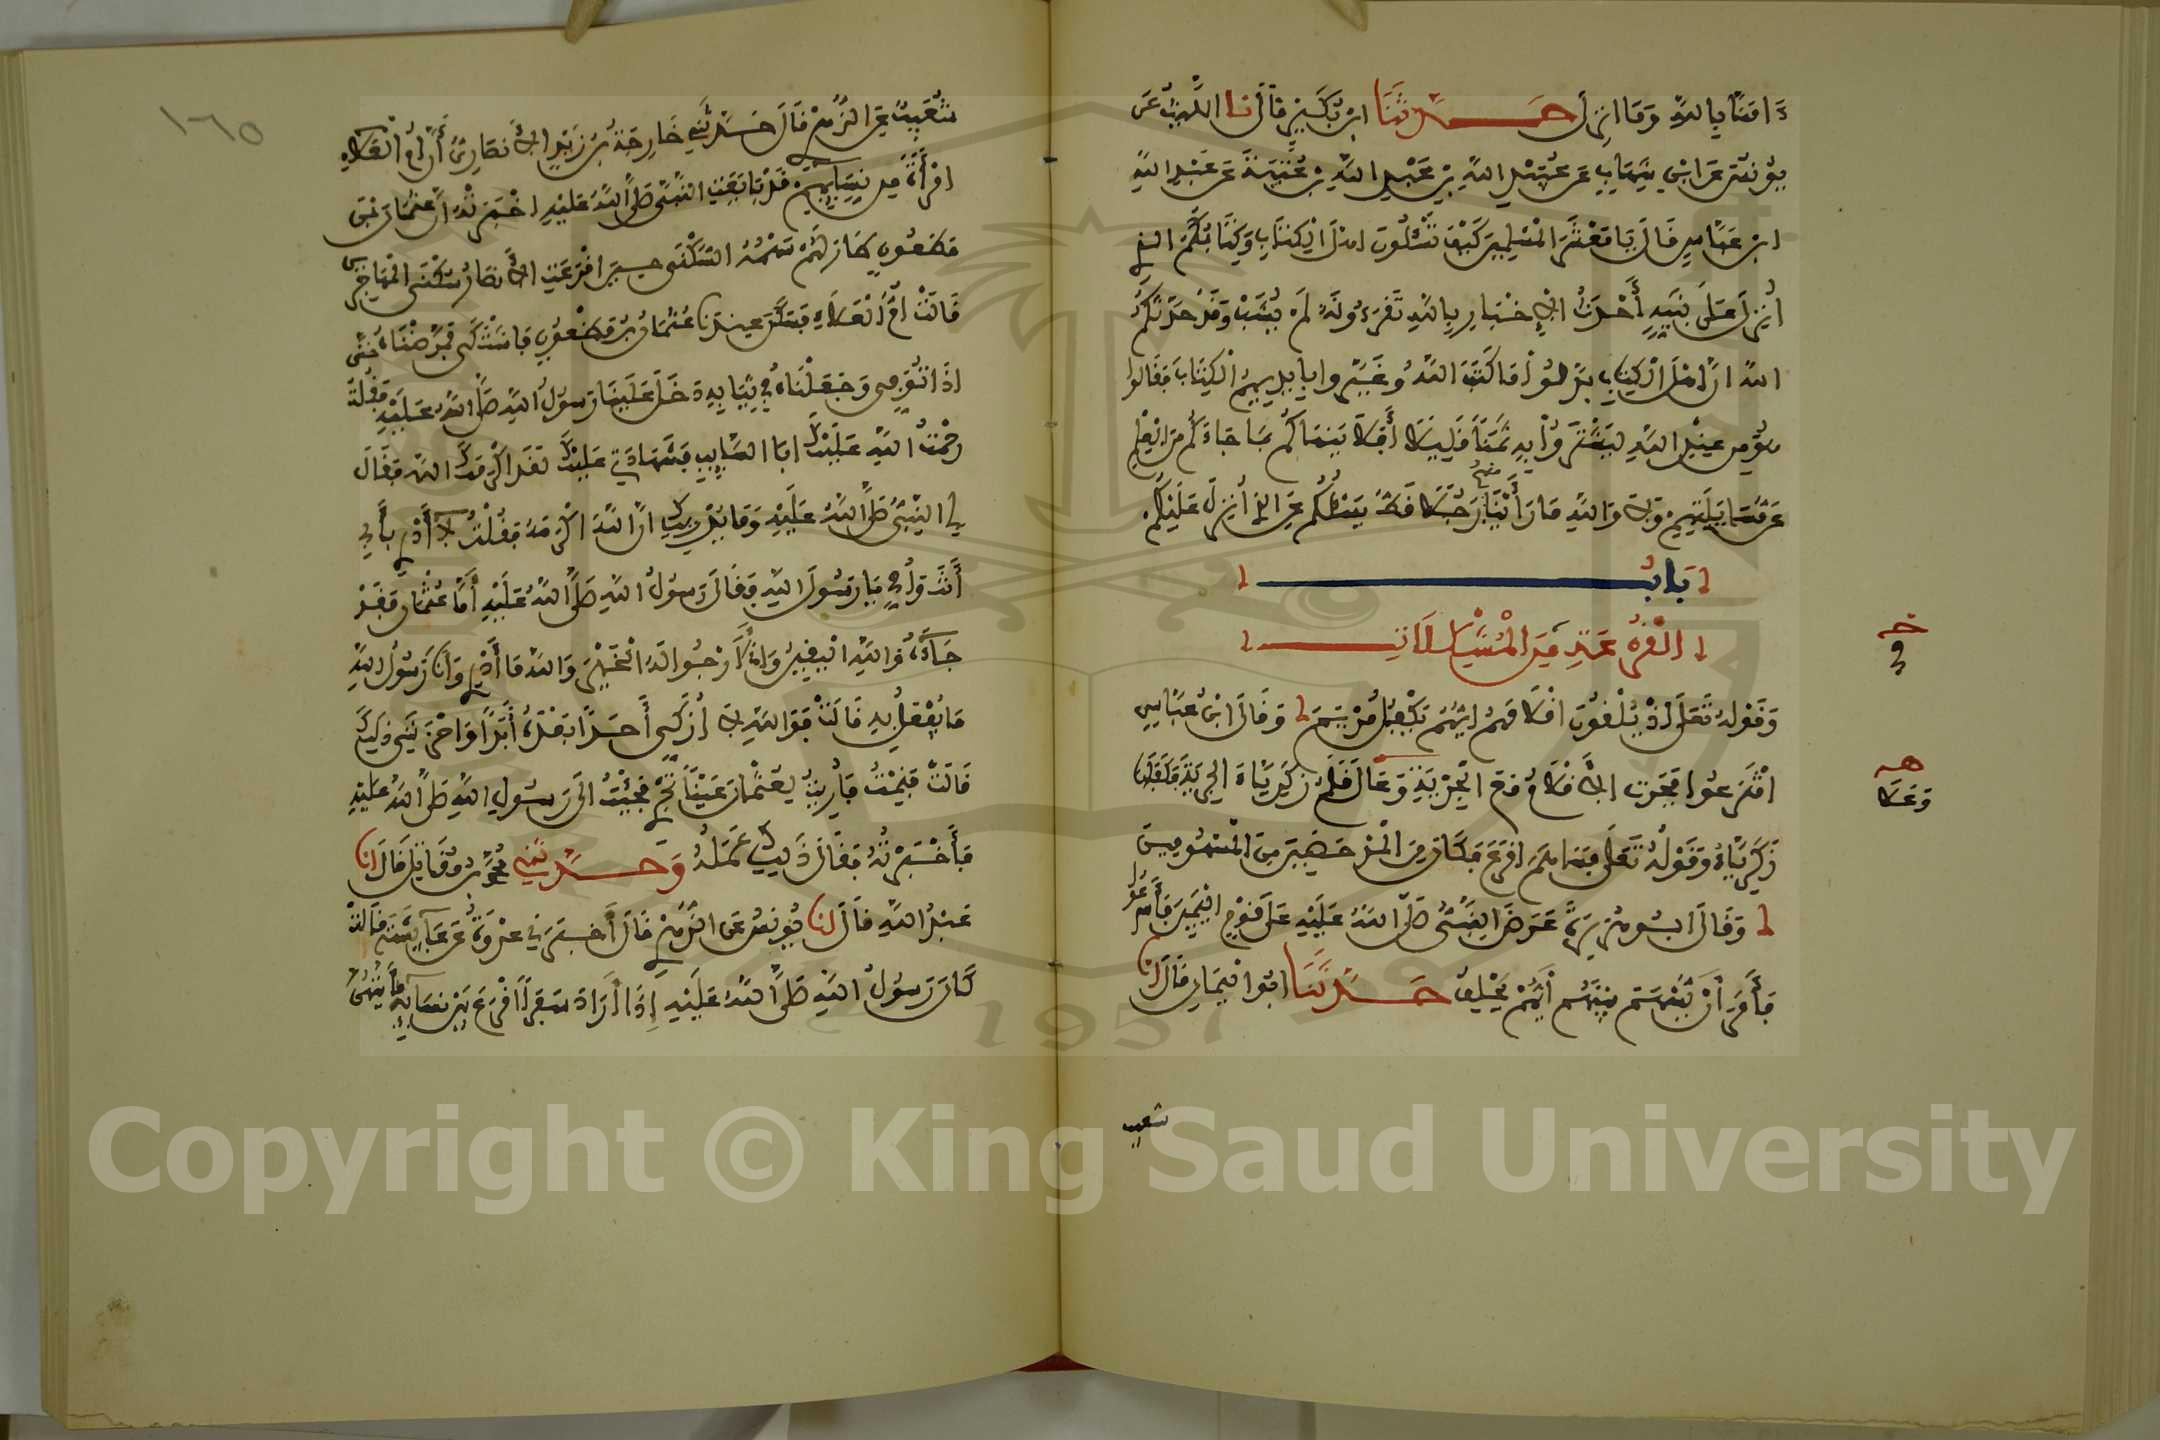 ءامنا بالله وما انزل حدثنا ابن بكير قال نا الليث عن
يونس عن ابن شهاب عن عبيد الله بن عبد الله بن عتبة عن عبد الله
ابن عباس قال يا معشر المسلمين كيف تسئلون اهل الكتاب وكتابكم الذي
أنزل على نبيه أحدث الاخبار بالله تقرءونه لم يشب وقد حدثكم
الله ان اهل الكتاب بدلوا ما كتب الله وغيروا بايديهم الكتاب فقالوا
هو من عند الله ليشتروا به ثمنا قليلا أفلا ينهاكم ما جاءكم من العلم
عن مسايلتهم ولا والله ما رأينا رجلا قط يسئلكم عن الذي أنزل عليكم
منهم
باب
القرعة في المشكلات
وقوله تعلى اذ يلقون اقلامهم ايهم يكفل مريم وقال ابن عباس
اقترعوا فجرت الاقلام مع الجرية وعال قلم زكرياء الجرية فكفلها
زكرياء وقوله تعلى فساهم اقرع فكان من المدحضين من المسهومين
وقال ابو هريرة عرض النبي صلى الله عليه على قوم اليمين فأسرعوا
فأمر أن يسهم بينهم أيهم يحلف حدثنا ابو اليمان قال انا
شعيب
وعلا
١٦٥
شعيب عن الزهري قال حدثني خارجة بن زيد الانصاري أن أم العلاء
امرأة من نسايهم قد بايعت النبي صلى الله عليه اخبرته أن عثمان بن
مظعون طار لهم سهمه السكنى حين اقترعت الأنصار سكنى المهاجرين
قالت أم العلاء فسكن عندنا عثمان بن مظعون فاشتكى فمرضناه حتى
اذا توفي وجعلناه في ثيابه دخل علينا رسول الله صلى الله عليه فقلت
رحمت الله عليك ابا السايب فشهادتي عليك لقد اكرمك الله فقال
لي النبي صلى الله عليه وما يدريك ان الله اكرمه فقلت لا أدري بأبي
أنت وأمي يا رسول الله فقال رسول الله صلى الله عليه أما عثمان فقد
جاءه والله اليقين وانى لأرجوا له الخير والله ما أدري وأنا رسول الله
ما يفعل به قالت فوالله لا أزكي أحدا بعده أبدا واحزنني ذلك
قالت فنمت فأريت لعثمان عينا تجري فجئت الى رسول الله صلى الله عليه
فأخبرته فقال ذلك عمله وحدثني محمد بن مقاتل قال انا
عبد الله قال انا يونس عن الزهري قال أخبرني عروة عن عايشة قالت
كان رسول الله صلى الله عليه إذا أراد سفرا أقرع بين نسايه فأيتهن
Copyright © King Saud University
1957